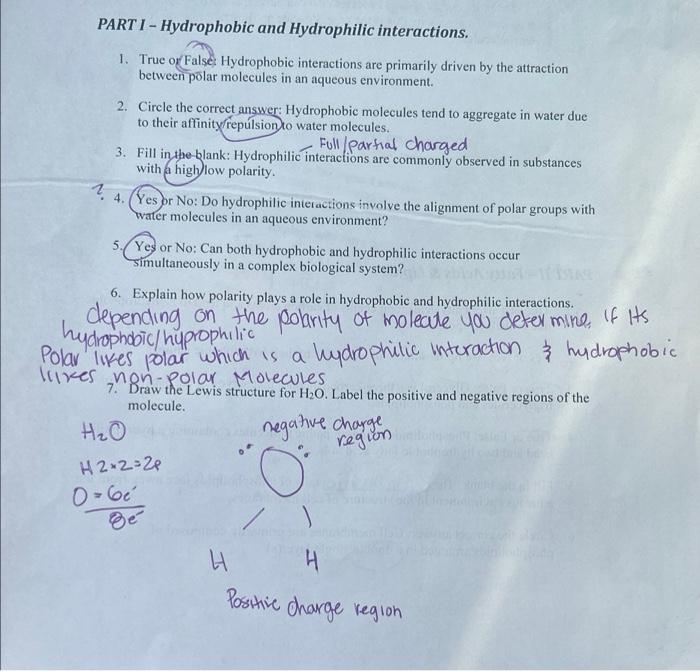 PART I – Hydrophobic and Hydrophilic interactions.
1. True or False: Hydrophobic interactions are primarily driven by the attraction
between polar molecules in an aqueous environment.
2. Circle the correct answer: Hydrophobic molecules tend to aggregate in water due
to their affinity/repulsion to water molecules.
Full/partial charged
3. Fill in the blank: Hydrophilic interactions are commonly observed in substances
with a high/low polarity.
? 4. Yes or No: Do hydrophilic interactions involve the alignment of polar groups with
water molecules in an aqueous environment?
5. Yes or No: Can both hydrophobic and hydrophilic interactions occur
simultaneously in a complex biological system?
6. Explain how polarity plays a role in hydrophobic and hydrophilic interactions.
depending on the polarity of molecule you determine, if its
hydrophobic/hyprophilic
Polar likes polar which is a hydrophilic interaction & hydrophobic
likes non-polar Molecules
7. Draw the Lewis structure for H₂O. Label the positive and negative regions of the
molecule.
H₂O
negative charge
region
H 2×2=2e
O = 6e⁻
8e⁻
O
H H
Positive charge region